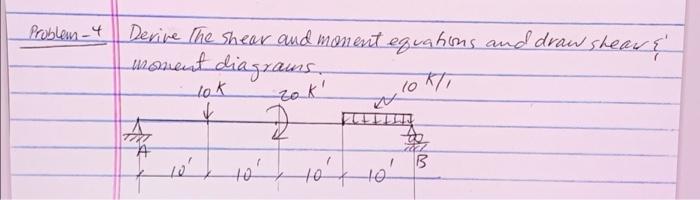 Problem-4 Derive The shear and moment equations and draw shear &
moment diagrams.
10K 20 K' 10 K/1
A B
10' 10' 10' 10'